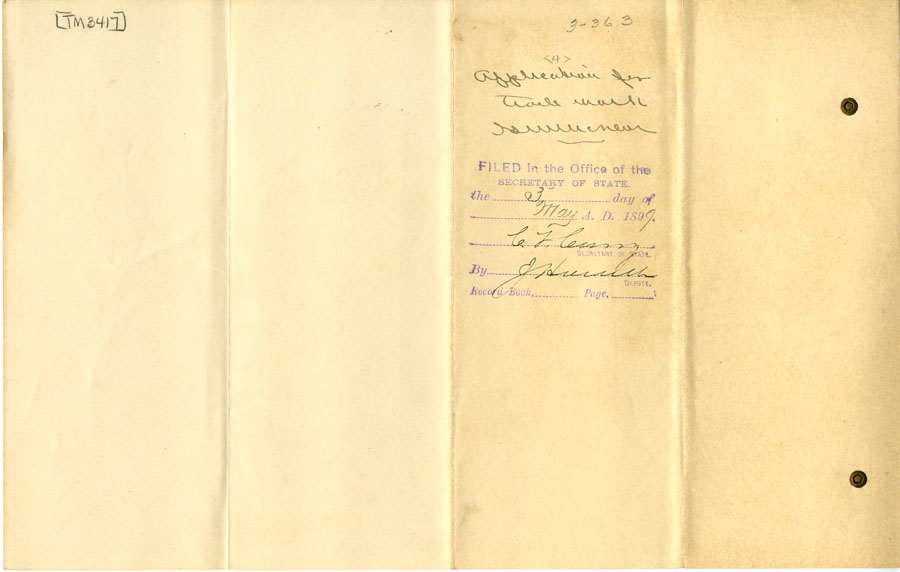 [TM3417]
3-363
<4>
Application for
trade mark
FILED in the Office of the
SECRETARY OF STATE.
the 3" day of
May A. D. 1899.
C F Curry
SECRETARY OF STATE.
By J
DEPUTY.
Record Book, Page,